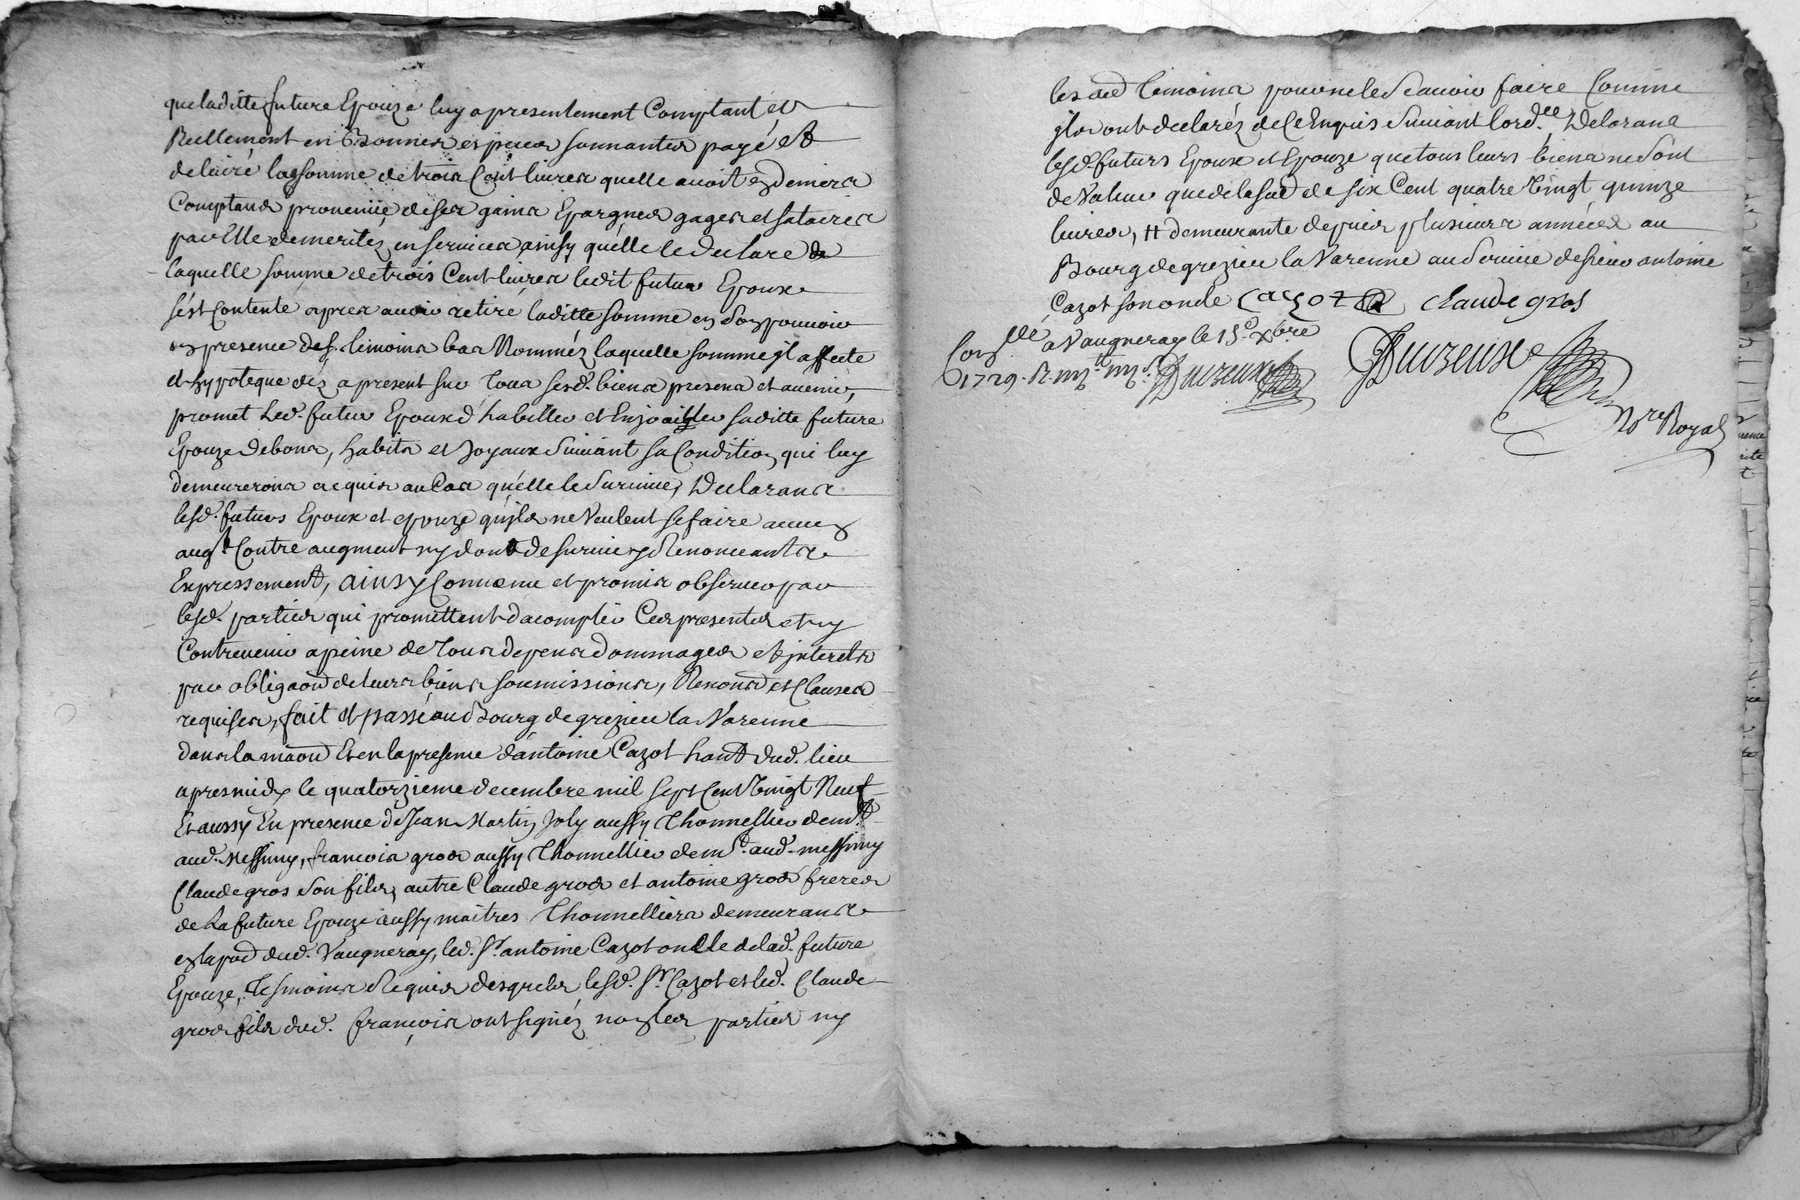 que laditte future Epouze luy a presentement Comptant et
Reellement en Bonnes espices sonnantes payé et
delivré la somme de trois Cent livres quelle avoit en deniers
Comptans provenüe de ses gains Epargnes gages et salaires
par Elle demeritez en services ainsy qu'elle le declare de
laquelle somme de trois Cent livres ledit futur Epoux
s'est Contenté apres avoir retiré laditte somme en son pouvoir
en presence des. temoins bas Nommez laquelle somme il affecte
et hypoteque déz a present sur Tous sesd. biens presens et avenir,
promet Led. futur Epoux d'habiller et Enjoailler saditte future
Epouze de bons, habits et Joyaux Suivant sa Condition qui luy
demeureront acquis au Cas qu'elle le Survive, Declarans
lesd. futurs Epoux et epouze qu'ils ne veulent se faire aucun
augt. Contre augment ny dont de survie y Renonceants
Expressement, ainsy Convenu et promis observer par
lesd. parties qui promettent d'acomplir Ces presentes et ny
Contrevenir a peine de Tous depens dommages et interets
par obligaon de leurs biens soumissions, Renond et Clauses
requises, fait et passé aud Bourg de grezieu la Varenne
dans la maon Et en la presence d'antoine Cazot hant dud. lieu
apres midy le quatorzieme decembre mil sept Cent Vingt Neuf
Et aussy En presence de Jean Martin Joly aussy Thonnellier demt.
aud. Messimy, francois gros aussy Thonnellier demt. aud. messimy
Claude gros son fils, autre Claude gros et antoine gros freres
de La future Epouze aussy maitres Thonnelliers demeurans
en la pad dud. Vaugneray, led. Sr. antoine Cazot oncle de lad. future
Epouze, Tesmoins Requis desquels lesd. Sr. Cazot et led. Claude
gros fils dud. françois ont signéz non les parties ny
les aud temoins pour ne le Scavoir faire Comme
ils ont declaréz de Ce Enquis Suivant lord.ce Declarant
lesd. futurs Epoux et Epouze que tous leurs biens ne sont
de Valeur que de lasud de six Cent quatre Vingt quinze
livres, demeurante depuis plusieurs années au
Bourg de grezieu la Varenne au Service de sieur antoine
Cazot son oncle Cazot claude gros
Conllé a Vaugneray le 15e. Xbre
1729. Duizeux Duizeux
Nore Royal